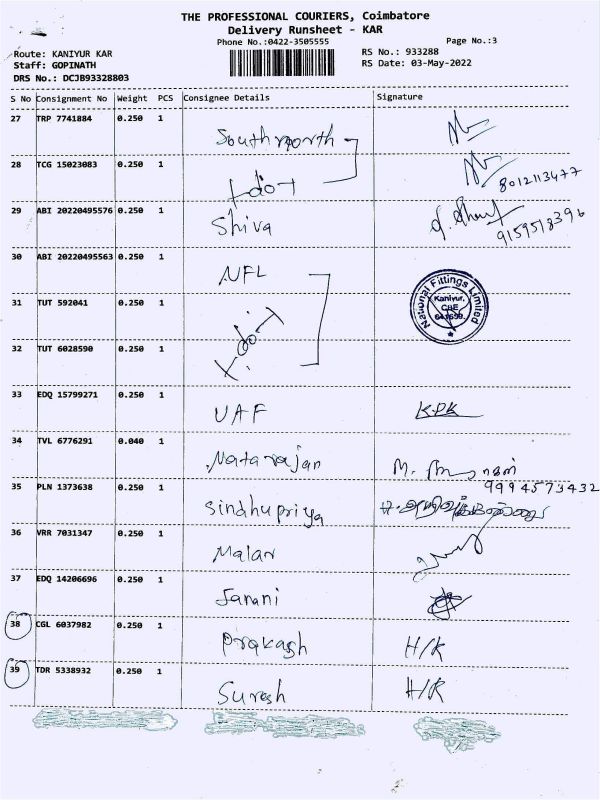 THE PROFESSIONAL COURIERS, Coimbatore
Delivery Runsheet - KAR
Phone No.:0422-3505555
Page No.:3
Route: KANIYUR KAR
Staff: GOPINATH
DRS No.: DCJB93328803
RS No.: 933288
RS Date: 03-May-2022
S No Consignment No Weight PCS Consignee Details Signature
27 TRP 7741884 0.250 1 Southnorth
28 TCG 15023083 0.250 1 -do- 8012113477
29 ABI 20220495576 0.250 1 Shiva 9159518396
30 ABI 20220495563 0.250 1 NFL
31 TUT 592041 0.250 1 -do- National Fittings Limited Kaniyur, CBE
32 TUT 6028590 0.250 1
33 EDQ 15799271 0.250 1 UAF K.PK
34 TVL 6776291 0.040 1 Natarajan M. 9994573432
35 PLN 1373638 0.250 1 Sindhupriya
36 VRR 7031347 0.250 1 Malar
37 EDQ 14206696 0.250 1 Janani
38 CGL 6037982 0.250 1 Prakash H/R
39 TDR 5338932 0.250 1 Suresh H/R